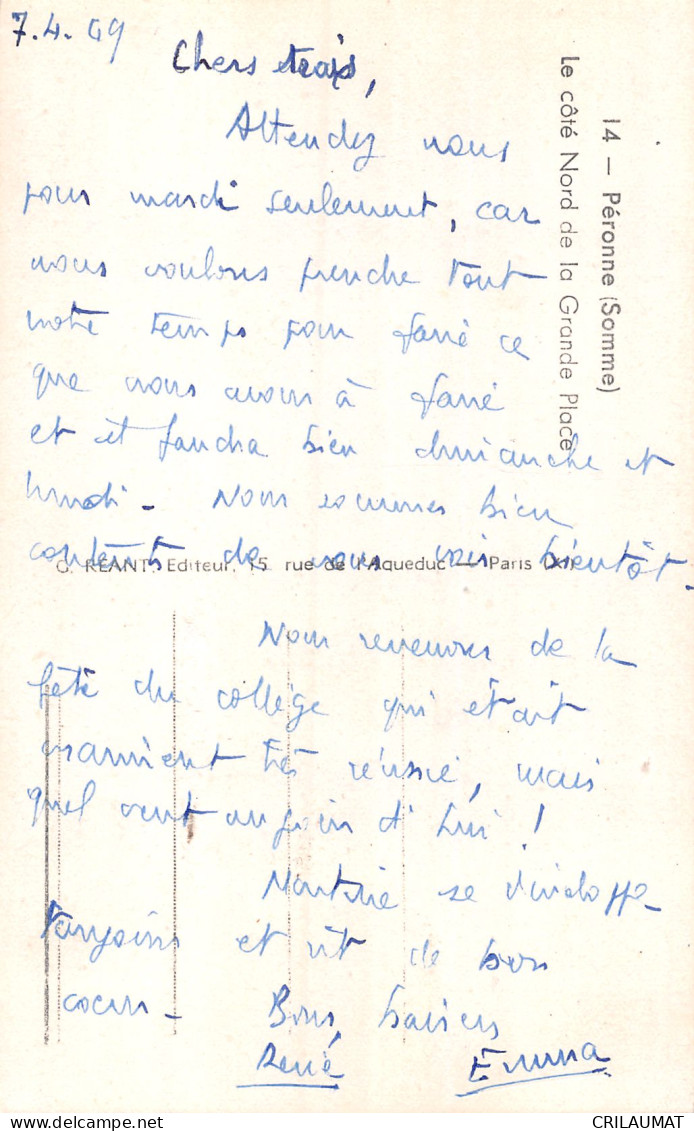 7.4.49
Chers trois,
Attendez nous
pour mardi seulement, car
nous voulons prendre tout
notre temps pour faire ce
que nous avons à faire
et il faudra bien dimanche et
lundi. Nous sommes bien
contents de vous voir bientôt.
Nous revenons de la
fête du collège qui était
vraiment très réussie, mais
quel vent aujourd'hui !
se développe
toujours et rit de bon
coeur. Bons baisers
René Emma
14 — Péronne (Somme)
Le côté Nord de la Grande Place
G. RÉANT, Editeur, 15 rue de l'Aqueduc — Paris
CRILAUMAT